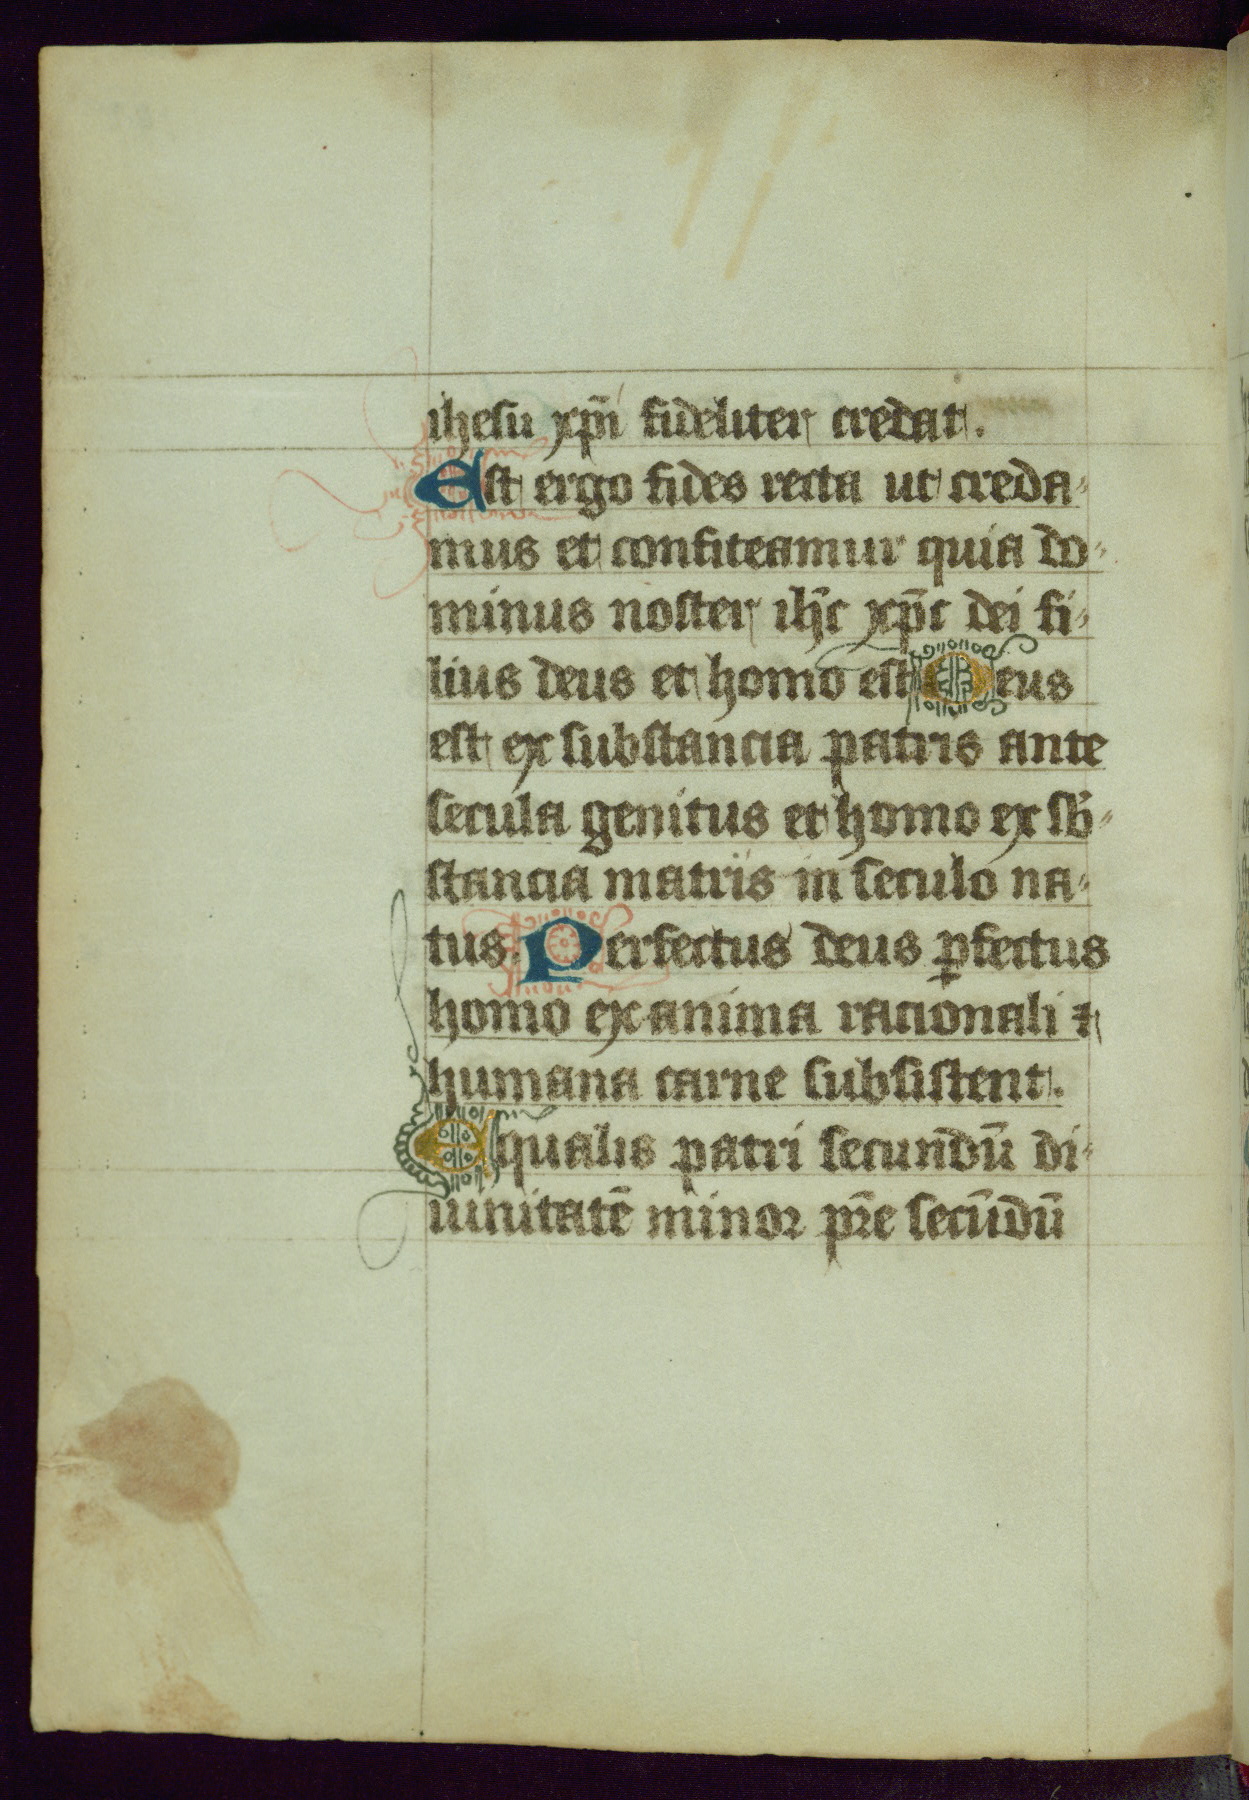 ihesu xp̄i fideliter credat.
Est ergo fides recta ut creda-
mus et confiteamur quia do-
minus noster ih̄c xp̄c dei fi-
lius deus et homo est Deus
est ex substancia patris ante
secula genitus et homo ex sb̄-
stancia matris in seculo na-
tus. Perfectus deus ꝑfectus
homo ex anima racionali ⁊
humana carne subsistent.
Equalis patri secundū di-
uinitatē minor pr̄e secūdū